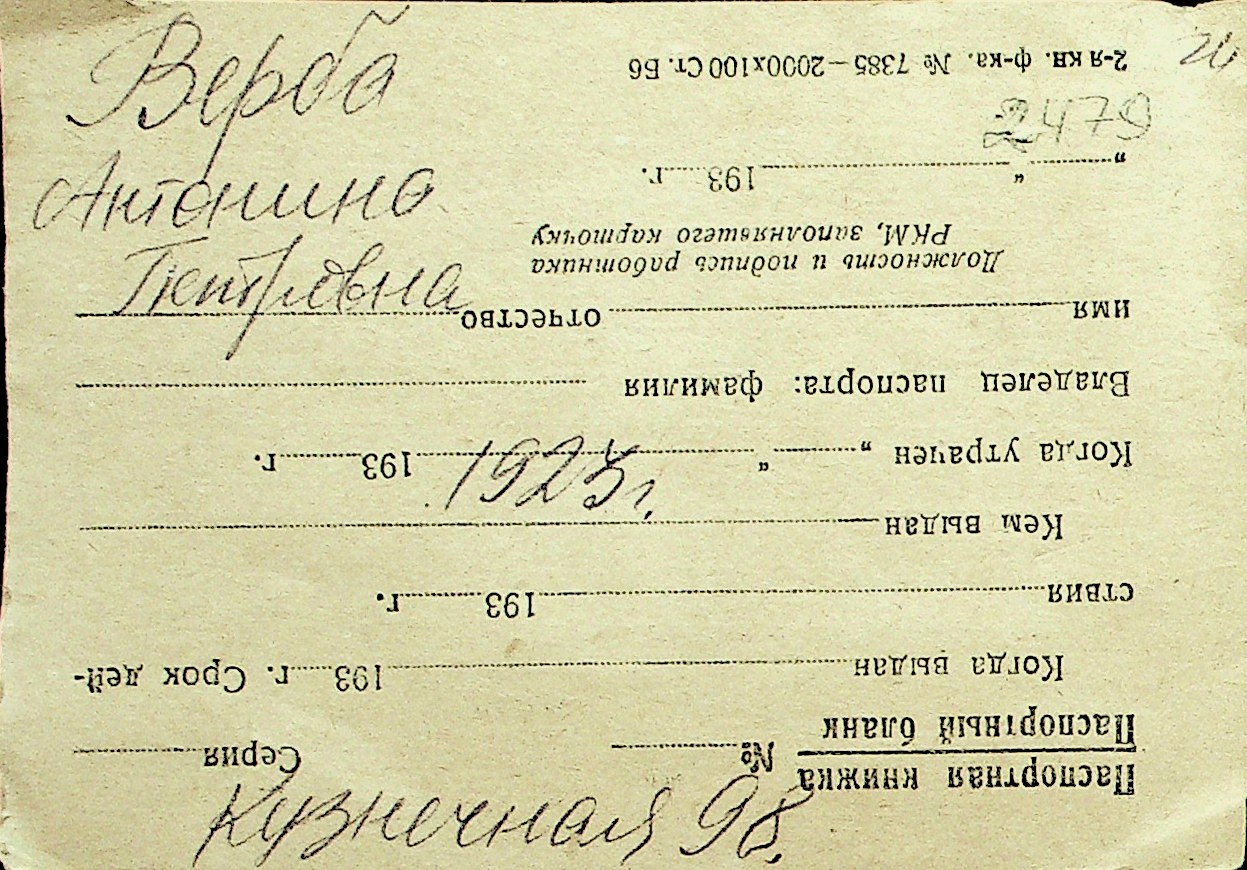 Верба
Антонина
Петровна
1923г.
Кузнечная 98.
2479
Паспортная книжка
Паспортный бланк
№ Серия
Когда выдан 193 г. Срок дей-
ствия 193 г.
Кем выдан
Когда утрачен „ “ 193 г.
Владелец паспорта: фамилия
имя отчество
Должность и подпись работника
РКМ, заполнявшего карточку
„ “ 193 г.
2-я кн. ф-ка. № 7385—2000х100 Ст. Б6